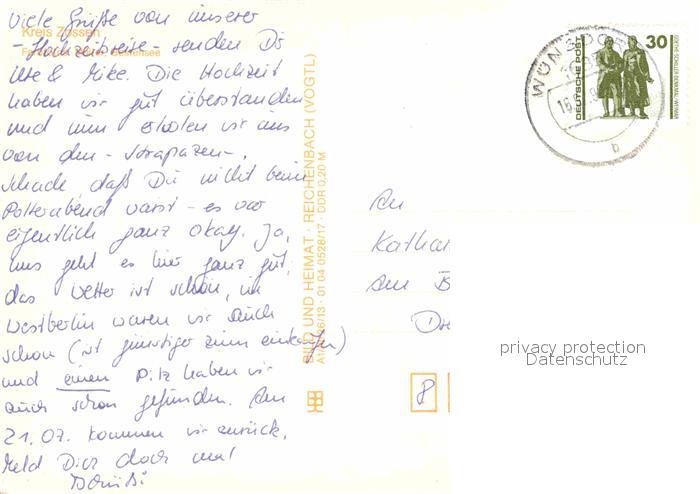 Viele Grüße von unserer
Kreis Zossen
- Hochzeitsreise - senden Dir
Ute & Mike. Die Hochzeit
haben wir gut überstanden
und nun erholen wir uns
von den - Strapazen -.
Schade, daß Du nicht beim
Polterabend warst - es war
eigentlich ganz okay. Ja,
uns geht es hier ganz gut,
das Wetter ist schön, in
Westberlin waren wir auch
schon (ist günstiger zum einkaufen)
und einen Pilz haben wir
auch schon gefunden. Am
21.07. kommen wir zurück.
Meld Dich doch mal
Tschüß!
BILD UND HEIMAT · REICHENBACH (VOGTL)
01 04 0528/17 · DDR 0,20 M
WÜNSDORF
b
DEUTSCHE POST
30
GOETHE-SCHILLER-DENKMAL · WEIMAR
An
Katha
Am
privacy protection
Datenschutz